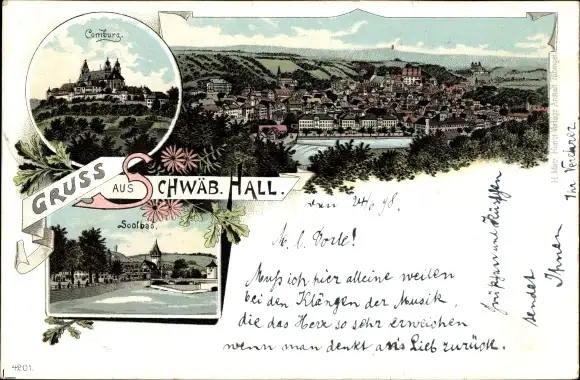 Comburg.
GRUSS AUS SCHWÄB. HALL.
Soolbad.
den 24/6 98.
M. l. Dorle!
Muß ich hier alleine weilen
bei den Klängen der Musik,
die das Herz so sehr erweichen
wenn man denkt an's Lieb zurück.
und Küssen
sendet
Ihnen
Ihr
4201.